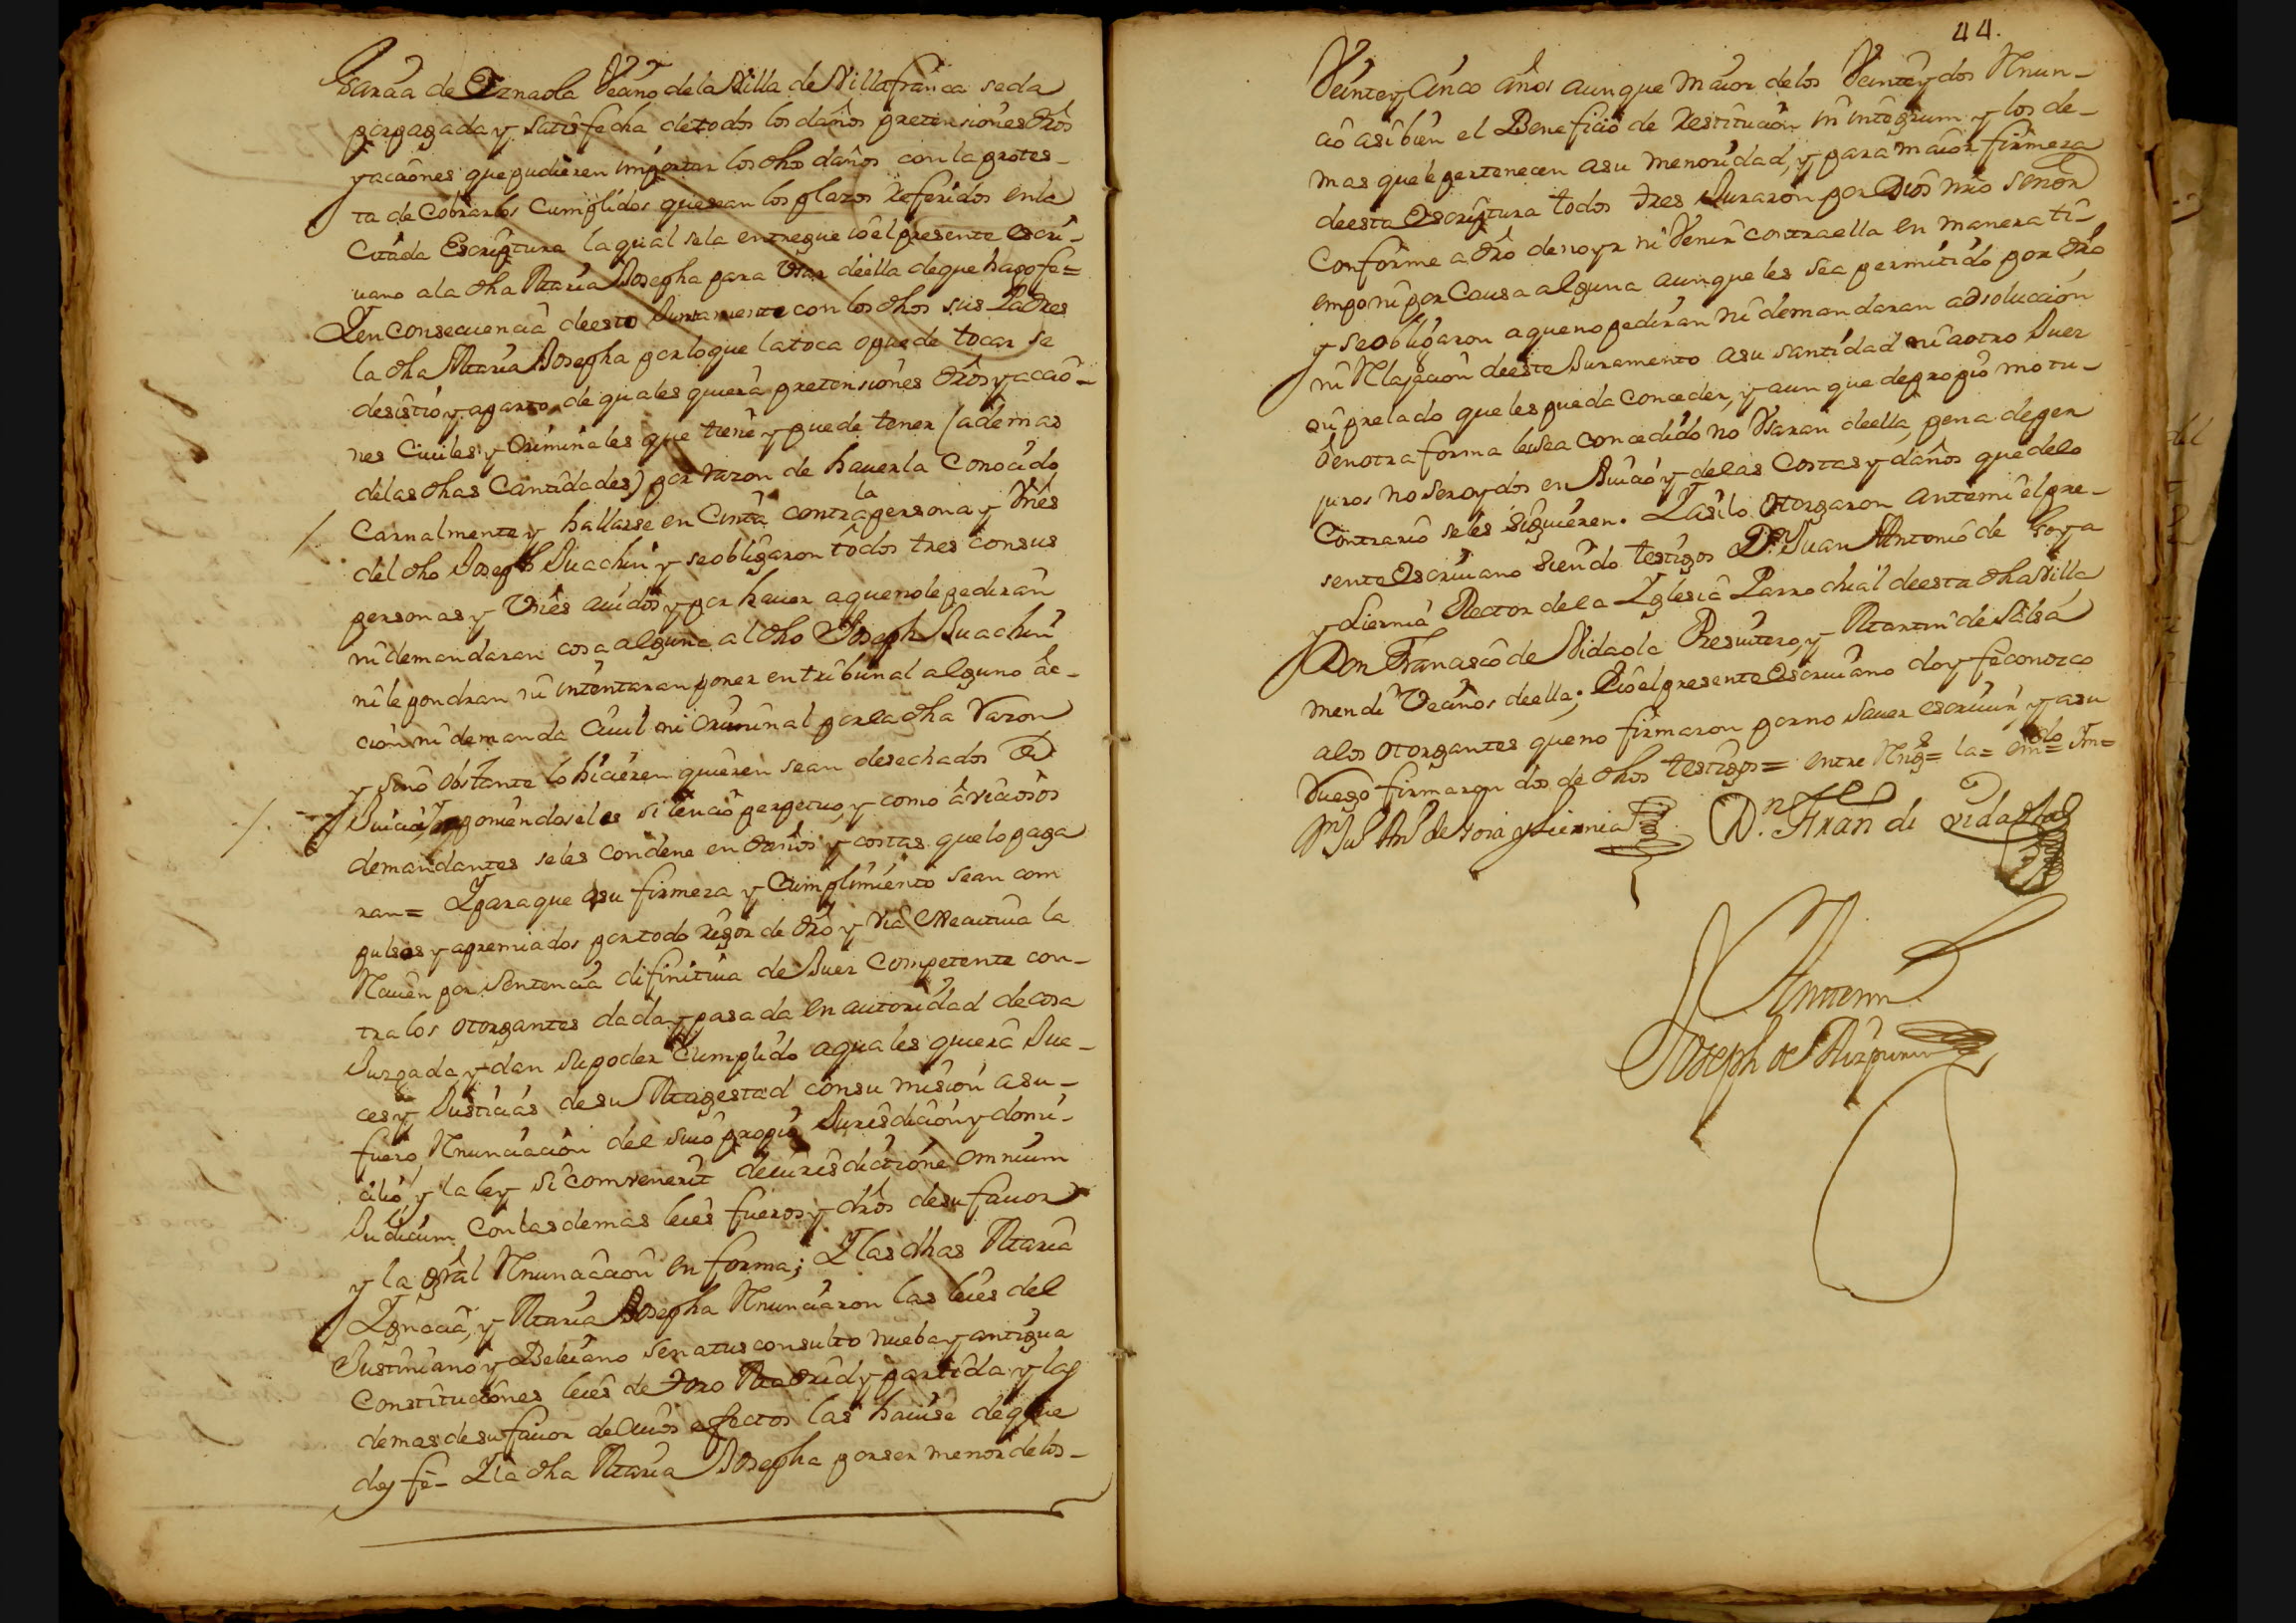 Garzia de Iznaola Vecino de la Villa de Villafranca se da
por pagada y satisfecha de todos los daños pretensiones dros
y acciones que pudieren importar los dhos daños con la protes-
ta de Cobrarlos Cumplidos que sean los plazos referidos en la
Citada Escriptura la qual se la entregue io el presente escri-
uano a la dha Maria Josepha para Vsar de ella de que hago fe=
Y en consecuencia de esto Juntamente con los dhos sus Padres
la dha Maria Josepha por lo que la toca o puede tocar se
desistio y aparto de quales quiera pretensiones dros y accio-
nes Ciuiles y Criminales que tiene y puede tener (ademas
de las dhas Cantidades) por razon de hauerla Conocido
Carnalmente y hallarse en Cinta contra la persona y Vnes
del dho Joseph Juachin y se obligaron todos tres con sus
personas y Vnes auidos y por hauer a que no le pediran
ni demandaran cosa alguna al dho Joseph Juachin
ni le pondran ni intentaran poner en tribunal alguno ac-
cion ni demanda Ciuil ni Criminal por la dha razon
y si no obstante lo hicieren quieren sean desechados de
Juicio, ymponiendoseles silencio perpetuo, y como a viciosos
demandantes se les condene en daños y costas que lo paga
ran= Y para que a su firmeza y Cumplimiento sean com
pulsos y apremiados por todo rigor de dro y via executiua la
Rciuen por Sentencia difinitiua de Juez Competente con-
tra los otorgantes dada y pasada en autoridad de cosa
Juzgada y dan su poder Cumplido a quales quiera Jue-
ces y Justicias de su Magestad con su mision a su
fuero Rnunciacion del suio propio Jurisdicion y domi-
cilio, y la ley si comvenerit de iurisdictione omnium
Judicum con las demas leies fueros y dros de su fauor
y la gral Rnunciacion en forma; Y las dhas Maria
Ygnacia, y Maria Josepha Rnunciaron las leies del
Justiniano y Beleiano senatus consulto nueba y antigua
Constituciones leies de Toro Madrid y partida y las
demas de su fauor de cuios efectos las hauise de que
doy fe- Y la dha Maria Josepha por ser menor de los-
44.
Veinte y Cinco años aunque maior de los Veinte y dos Rnun-
cio asi bien el Beneficio de Restitucion in integrum y los de-
mas que le pertenecen a su menoridad, y para maior firmeza
de esta Escriptura todos tres Juraron por Dios nro señor
Conforme a dro de no yr ni Venir contra ella en manera ti-
empo ni por Causa alguna aunque les sea permitido por dro
y se obligaron a que no pediran ni demandaran adsolucion
ni Rlajacion de este Juramento a su santidad ni a otro Juez
ni prelado que les pueda Conceder, y aun que de propio motu-
o en otra forma les sea concedido no Vsaran de ella, pena de per
juros no ser oydos en Juicio y de las Costas y daños que de lo
Contrario se les siguieren. Y asi lo otorgaron ante mi el pre-
sente Escriuano siendo testigos Dn Juan Antonio de Goya
y Liernia Rector de la Yglesia Parrochial de esta dha Villa
Don Francisco de Vidaola Presuitero, y Martin de Salsa
mendi Vecinos de ella; E io el presente Escriuano doy fe conozco
a los otorgantes que no firmaron por no Sauer escriuir, y a su
Ruego firmaron dos de dhos testigos= entre Rng= la=
Dn Jun Anto de Goia y Liernia Dn. Fran de vidaola
Ante mi
Joseph de Aizpuru